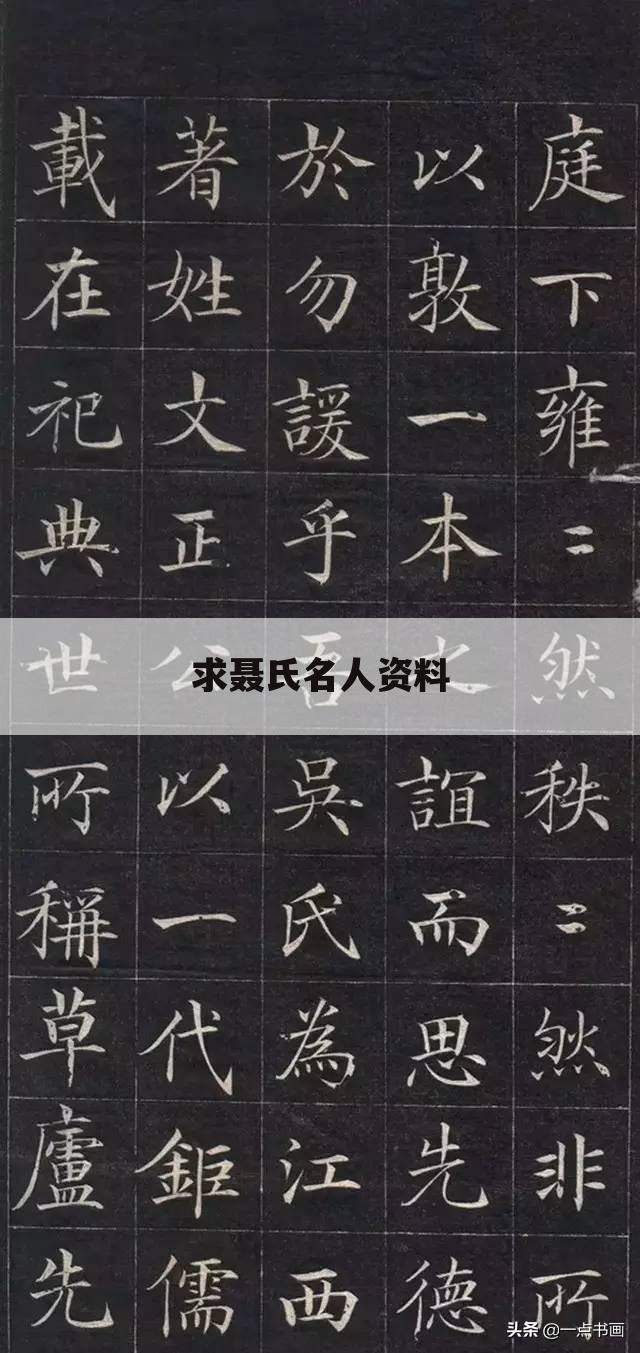 庭下雍〻然秩〻然非所
以敦一本之誼而思先德
於勿諼乎吾吳氏為江西
著姓文正公以一代鉅儒
載在祀典世所稱草廬先
求聂氏名人资料
头条 @一点书画